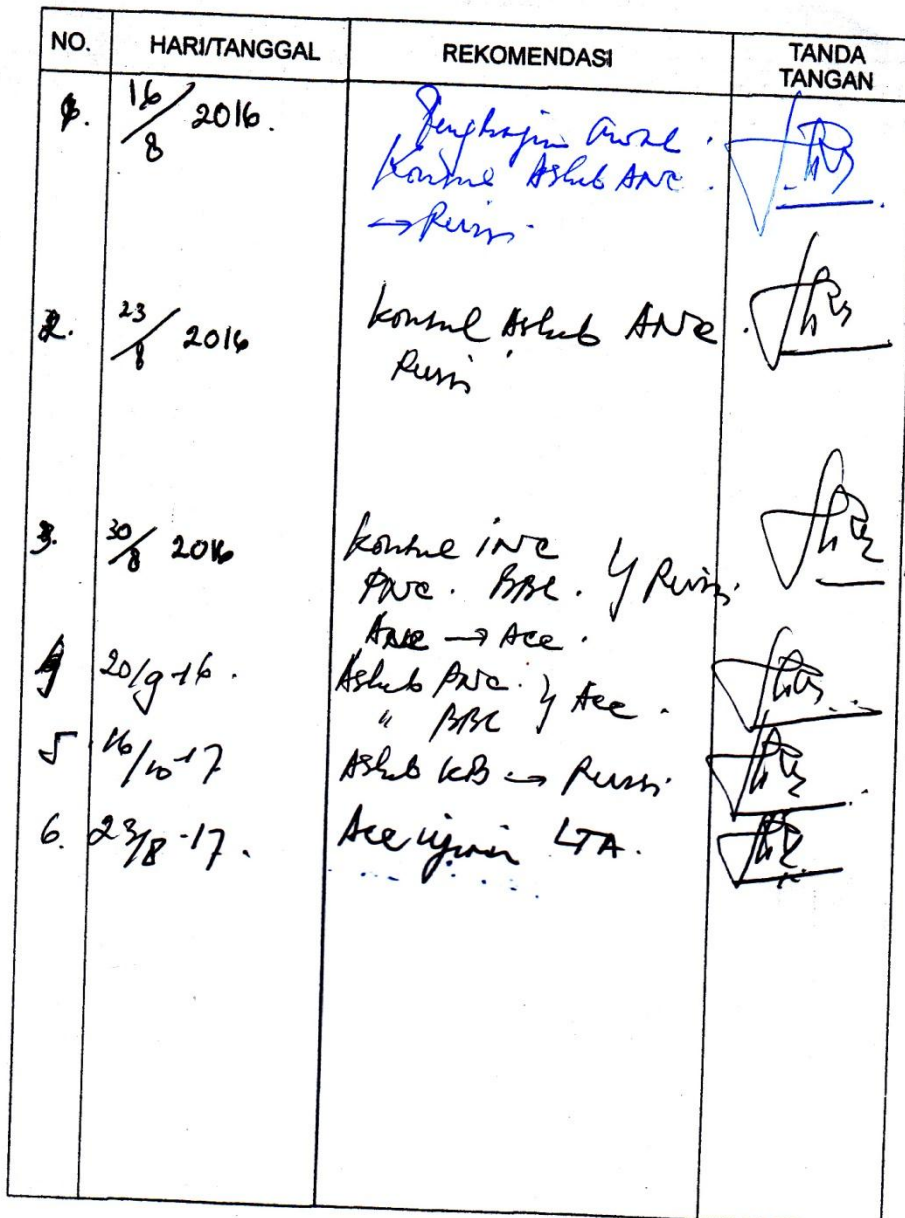 NO. HARI/TANGGAL REKOMENDASI TANDA TANGAN
1. 16/8 2016. Pengkajian awal.
Konsul Askeb ANC.
→ Revisi
2. 23/8 2016 konsul Askeb ANC.
Revisi
3. 30/8 2016 konsul INC
PNC. BBL. } Revisi
ANC → Acc.
4 20/9-16. Askeb PNC. } Acc.
" BBL
5 16/10-17 Askeb KB → Revisi
6. 23/8-17. Acc ujian LTA.